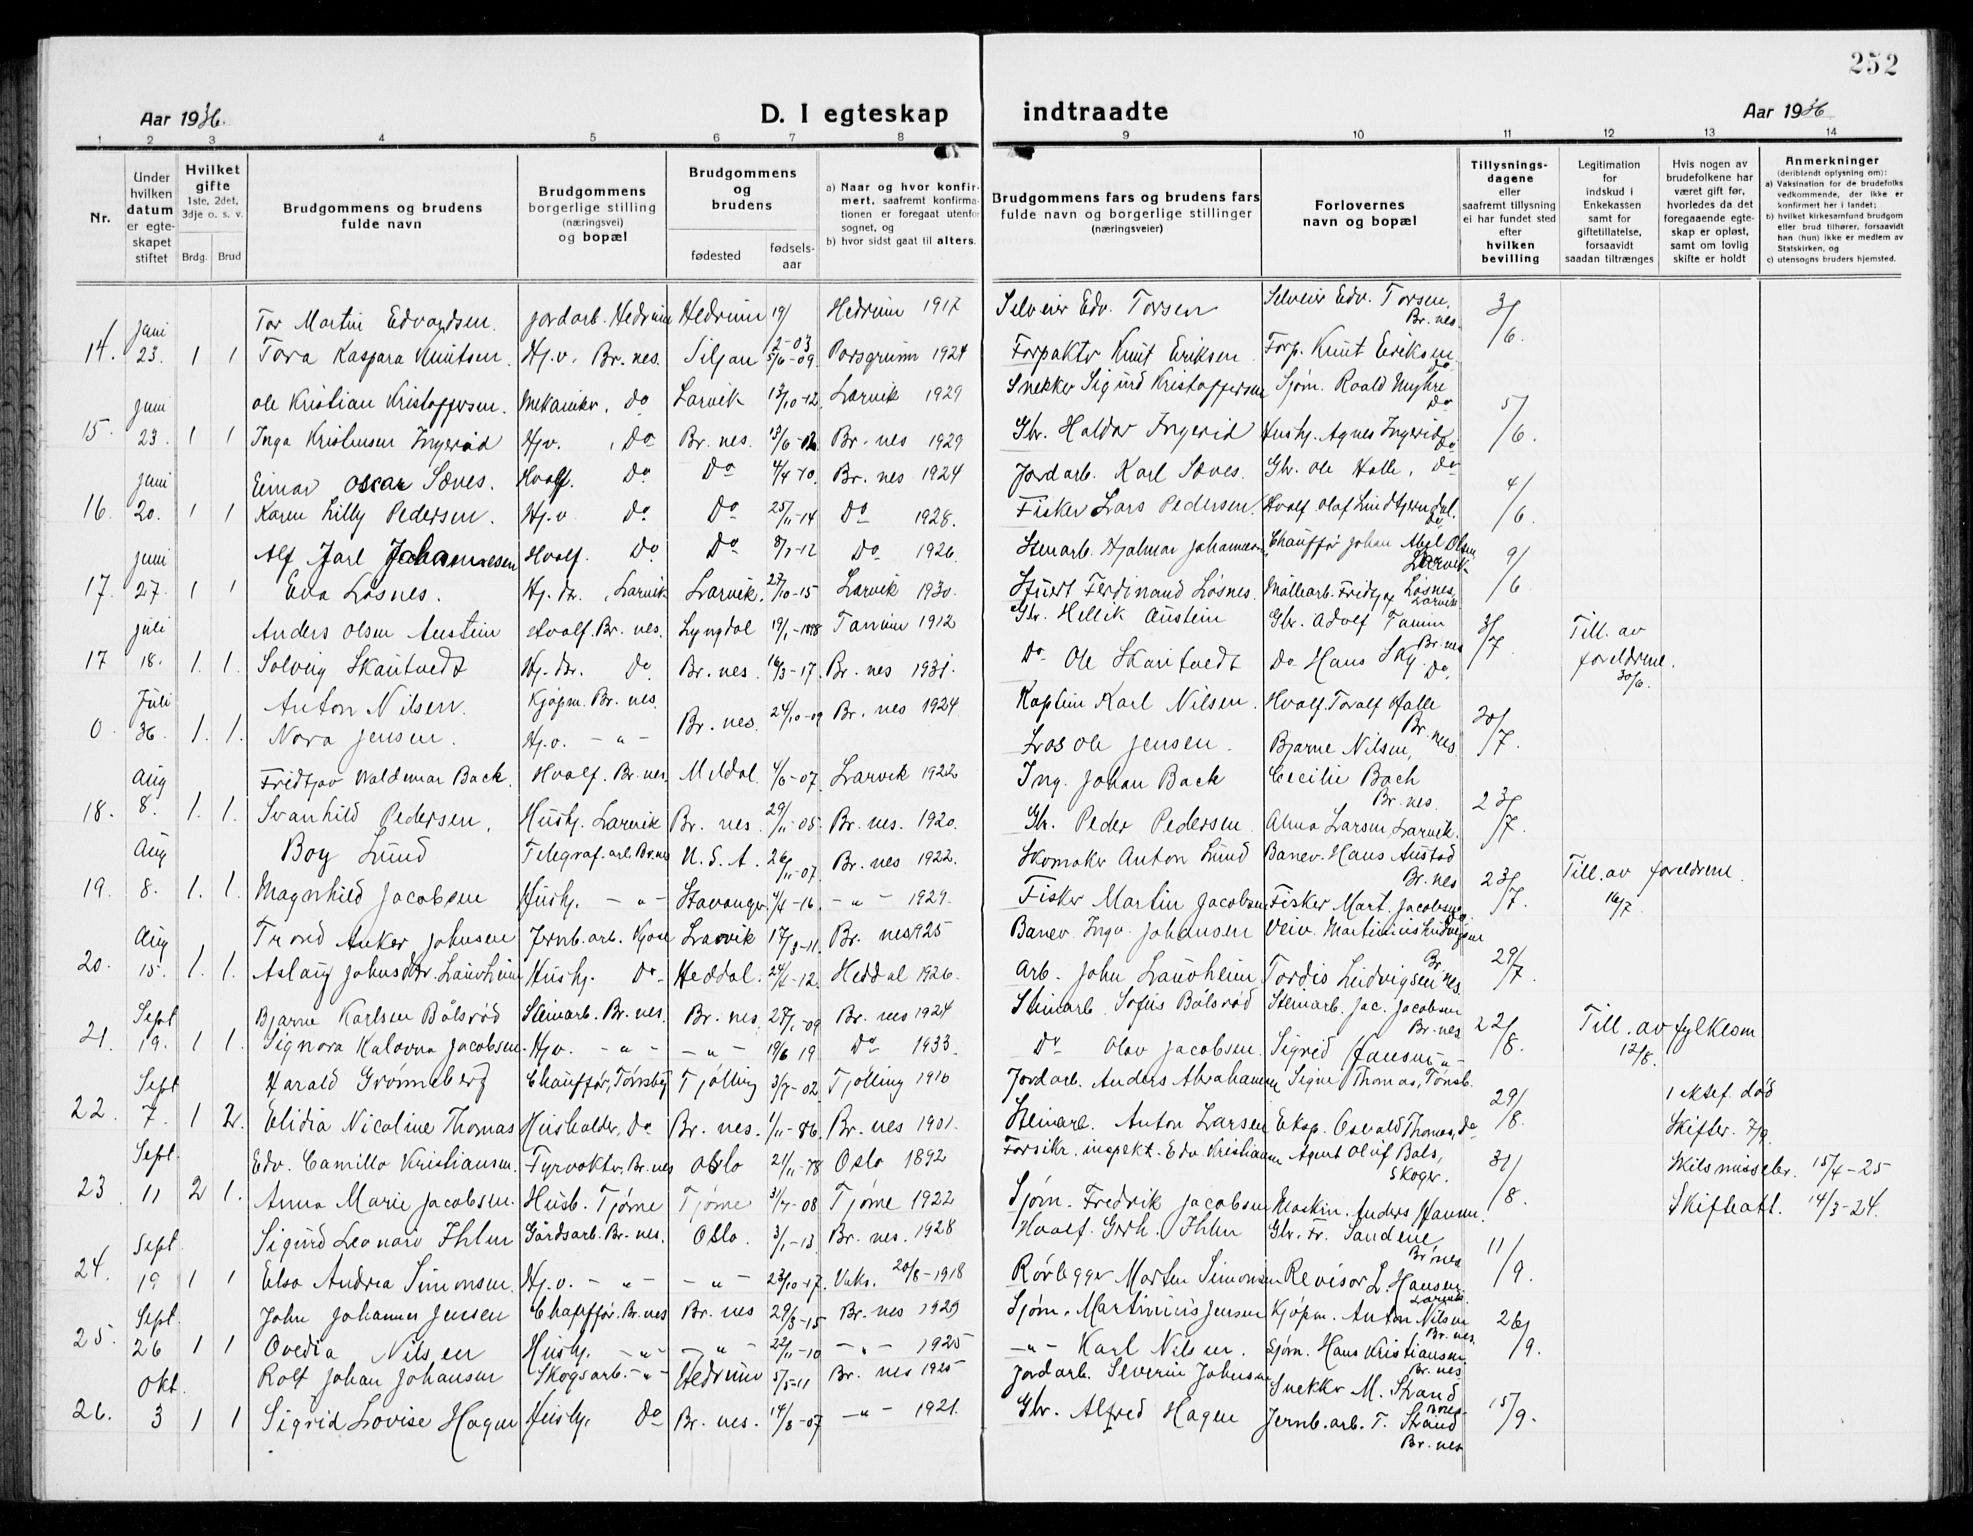 252
Aar 1936.
D. I egteskap
indtraadte
Aar 1936
1 2 3 4 5 6 7 8 9 10 11 12 13 14
Nr.
Under hvilken datum er egteskapet stiftet
Hvilket gifte 1ste, 2det, 3dje o. s. v.
Brdg. Brud
Brudgommens og brudens fulde navn
Brudgommens borgerlige stilling (næringsvei) og bopæl
Brudgommens og brudens
fødested
fødselsaar
a) Naar og hvor konfirmert, saafremt konfirmationen er foregaat utenfor sognet, og
b) hvor sidst gaat til alters.
Brudgommens fars og brudens fars fulde navn og borgerlige stillinger (næringsveier)
Forlovernes navn og bopæl
Tillysningsdagene eller saafremt tillysning ei har fundet sted efter hvilken bevilling
Legitimation for indskud i Enkekassen samt for giftetillatelse, forsaavidt saadan tiltrænges
Hvis nogen av brudefolkene har været gift før, hvorledes da det foregaaende egteskap er opløst, samt om lovlig skifte er holdt
Anmerkninger (deriblandt oplysning om):
a) Vaksination for de brudefolks vedkommende, der ikke er konfirmert her i landet;
b) hvilket kirkesamfund brudgom eller brud tilhører, forsaavidt han (hun) ikke er medlem av Statskirken, og
c) utensogns bruders hjemsted.
Tor Martin Edvardsen. Jordarb. Hedrum Hedrum 19/2-03 Hedrum 1917 Selveier Edv. Torsen Selveier Edv. Torsen, Br. nes. 3/6
14. Juni 23. 1 1 Tora Kaspara Knutsen. Hj.v. Br. nes. Siljan 5/6-09. Porsgrunn 1924 Forpakter Knut Eriksen. Forp. Knut Eriksen Do
Ole Kristian Kristoffersen. Mekaniker, Do Larvik 13/10-12. Larvik 1929 Snekker Sigurd Kristoffersen Sjøm. Roald Myhre Do 5/6.
15. Juni 23. 1 1 Inga Kristensen Ingerød Hjv., Do Br. nes. 13/6-12. Br. nes 1929 Gbr. Haldor Ingerid Hushj. Agnes Ingerid Do
Einar Oscar Sæves. Hvalf. Do Do 4/4-10. Br. nes 1924 Jordarb. Karl Sæves. Gbr. Ole Halle, Do 4/6
16. Juni 20. 1 1 Karen Lilly Pedersen. Hj.v. Do Do 25/11-14 Do 1928. Fisker Lars Pedersen. Hvalf. Olaf Lindhjemdal. Do
Alf Jarl Johannesen Hvalf. Do Do 8/7-12 Do 1926 Stenarb. Hjalmar Johannesen Chauffør Johan Abel Olsen Larvik 9/6
17. Juni 27. 1 1 Eva Løsnes. Hj. dtr., Larvik Larvik. 27/10-15 Larvik 1930. Stuert Ferdinand Løsnes. Møllearb. Fridtjof Løsnes, Larvik
Anders Olsen Austein Hvalf. Br. nes. Lyngdal 19/1-1898 Tanum 1912 Gbr. Hellik Austein Gbr. Adolf Tanum Br. nes 3/7 Till. av foreldrene. 30/6.
17 Juli 18. 1. 1. Solveig Skautvedt Hj. dtr. Do Br. nes. 16/3-17. Br. nes 1931. Do Ole Skautvedt Do Hans Sky. Do.
Anton Nilsen. Kjøpm. Br. nes. Br. nes. 24/10-09 Br. nes 1924 Kaptein Karl Nilsen. Hvalf. Toralf Halle Br. nes 20/7.
0. Juli 36. 1. 1. Nora Jensen. Hj.v. - " - Los Ole Jensen. Bjarne Nilsen,
Fridtjov Waldemar Back. Hvalf. Br. nes. Meldal. 4/6-07. Larvik 1922 Ing. Johan Back Cecilie Bach Br. nes. 23/7.
18. Aug 8. 1. 1. Svanhild Pedersen, Hushj. Larvik Br. nes. 29/11-05. Br. nes. 1920. Gbr. Peder Pedersen. Alma Larsen, Larvik.
Boy Lund Telegraf. arb. Br. nes U. S. A. 26/11-07. Br. nes 1922. Skomaker Anton Lund Banev. Hans Austad Br. nes 23/7. Till. av foreldrene. 16/7.
19. Aug 8. 1. 1. Magnhild Jacobsen Hushj. - " - Stavanger 4/4-16. - " - 1929. Fisker Martin Jacobsen Fisker Mart. Jacobsen Do.
Trond Anker Johnsen Jernb. arb. Kjose Larvik 17/8-11. Br. nes 1925 Banev. Ingv. Johansen Veiv. Martinius Ludvigsen Br. nes. 29/7.
20. Aug 15. 1. 1. Aslaug Johnsdtr. Lauvheim Hushj. Do Heddal. 24/1-12. Heddal 1926. Arb. John Lauvheim Tordis Ludvigsen
Bjarne Karlsen Bålsrød Steinarb. Br. nes. Br. nes. 27/1-09 Br. nes 1924 Steinarb. Sofus Bålsrød Steinarb. Jac. Jacobsen Br. nes. 22/8. Till. av fylkesm 12/8.
21. Sept 19. 1 1 Signora Kalovna Jacobsen. Hjv. - " - - " - 19/6 19 Do 1933. Do Olav Jacobsen. Sigrid Hansen - " -
Harald Grønneberg Chauffør, Tønsberg Tjølling 3/7-02. Tjølling 1916 Jordarb. Anders Abrahamsen Signe Thomas, Tønsb. 29/8. 1 ektef. død Skifter. 7/9.
22. Sept 7. 1 2. Elidia Nicoline Thomas Husholder, Do Br. nes. 1/11-86. Br. nes 1901. Stenarb. Anton Larsen Eksp. Osvald Thomas, Do
Edv. Camillo Kristiansen. Fyrvokter, Br. nes Oslo 21/11-78 Oslo 1892 Forsikr. inspekt. Edv. Kristiansen Agent Oluf Bals, Skoger. 31/8. Skilsmissebr. 15/4-25
23 Sept. 11 2 1. Anna Marie Jacobsen. Husb. Tjøme Tjøme 31/7-08 Tjøme 1922 Sjøm. Fredrik Jacobsen Maskin. Anders Hansen. Skifteatt. 14/3-24.
Sigurd Leonard Ihlen Gårdsarb. Br. nes. Oslo. 3/1-13. Br. nes. 1928 Hvalf. Gerh. Ihlen Gbr. Fr. Sandene, Br. nes 11/9.
24. Sept. 19 1 1 Elsa Andrea Simonsen Hj.v. - " - - " - 23/10-17. Vaks. 20/8-1918 Rørlegger Morten Simonsen Revisor L. Hansen, Larvik.
John Johannes Jensen Chauffør. Br. nes Br. nes 29/3-15 Br. nes 1929 Sjøm. Martinius Jensen Kjøpm. Anton Nilsen Br. nes. 26/9.
25. Sept. 26 1 1 Ovedia Nilsen Hushj. - " - - " - 22/11-10 - " - 1925 - " - Karl Nilsen. Sjøm. Hans Kristiansen. Br. nes
Rolf Johan Johansen Skogsarb. - " - Hedrum 5/5-11 Br. nes 1925 Jordarb. Severin Johnsen Snekker M. Strand Br. nes. 15/9.
26. Okt. 3 1 1 Sigrid Lovise Hagen Hushj. Do Br. nes. 14/8-07 - " - 1921. Gbr. Alfred Hagen Jernb. arb. T. Strand Br. nes